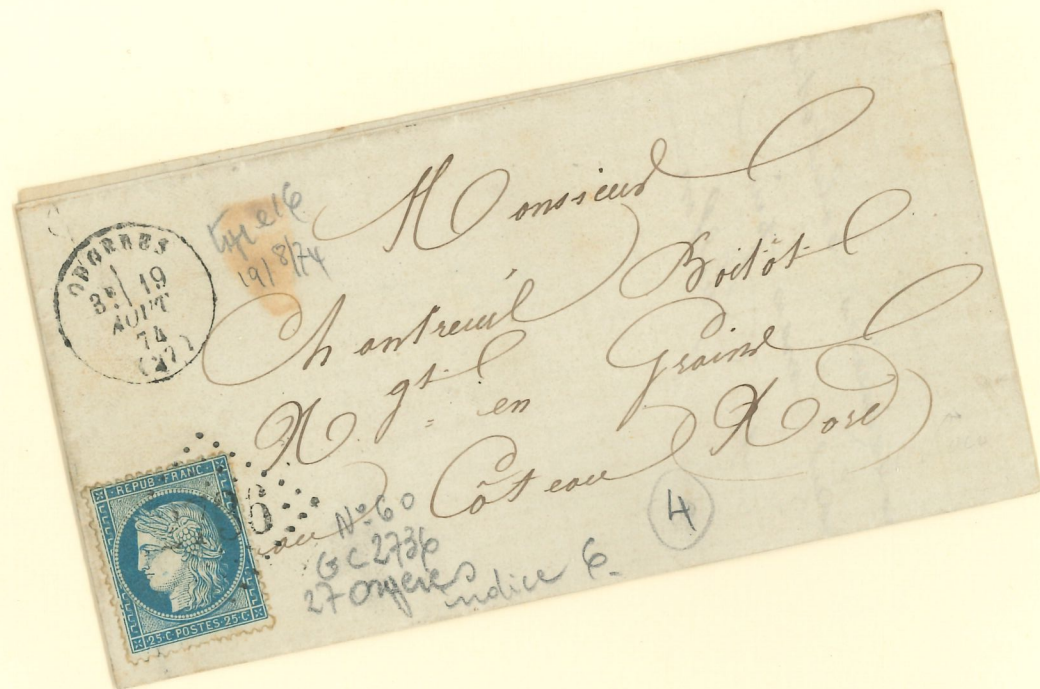 ORGERES
3E 19
AOUT
74
(27)
type 16
19/8/74
Monsieur
Chantreuil Boitôt
Ngt en Grains
Côteau Nord
REPUB. FRANC.
25·C·POSTES·25·C
N° 60
GC 2736
27 Orgères
indice 6
4